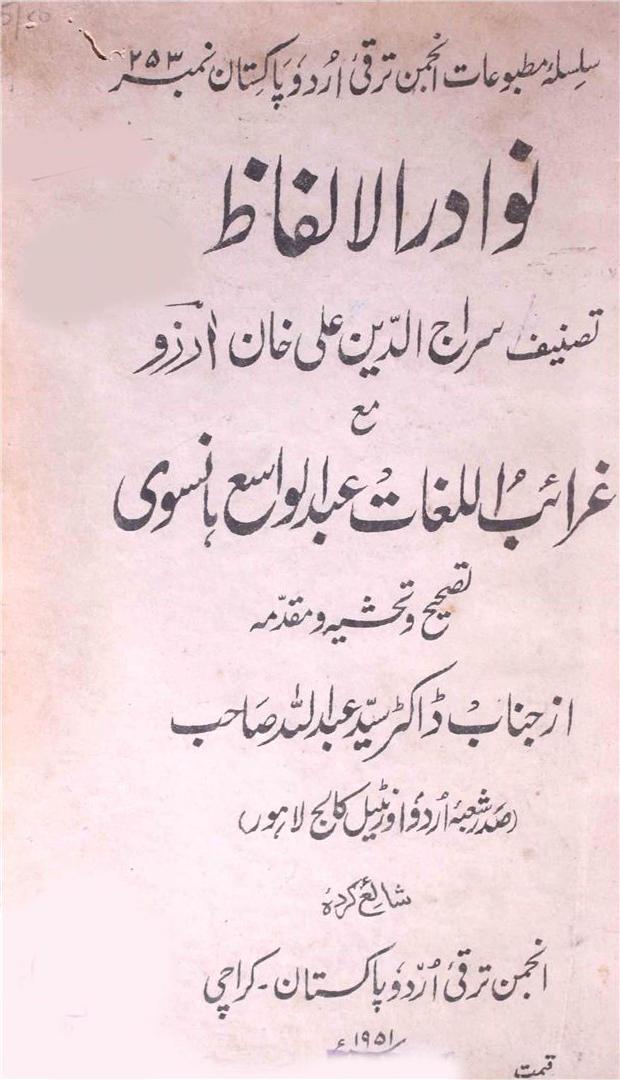 سلسلۂ مطبوعات انجمن ترقیٔ اُردو پاکستان نمبر ۲۵۳
نوادر الالفاظ
تصنیف سراج الدّین علی خان آرزو
مع
غرائبُ اللغات عبدالواسع ہانسوی
تصحیح و تحشیہ و مقدّمہ
از جناب ڈاکٹر سیّد عبداللہ صاحب
(صدر شعبۂ اُردو اورنٹیل کالج لاہور)
شائع کردہ
انجمن ترقیٔ اُردو پاکستان - کراچی
۱۹۵۱ء
قیمت